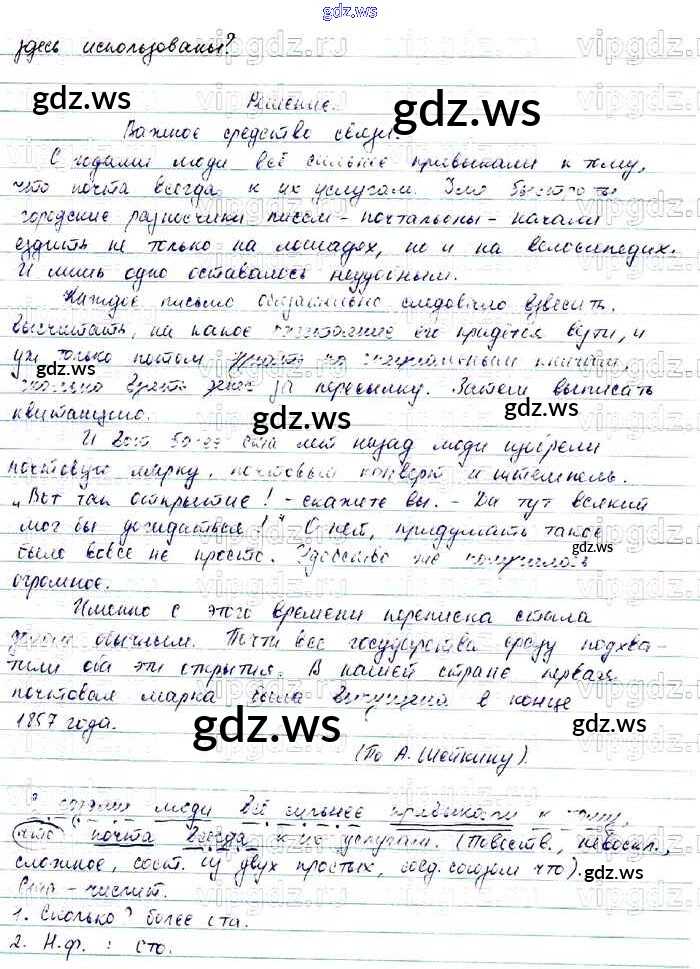 gdz.ws
здесь использованы?
Решение.
Важное средство связи.
С годами люди всё сильнее привыкали к тому,
что почта всегда к их услугам. Для быстроты
городские разносчики писем - почтальоны - начали
ездить не только на лошадях, но и на велосипедах.
И лишь одно оставалось неудобным.
Каждое письмо обязательно следовало взвесить,
высчитать, на какое расстояние его придётся везти, и
уж только потом узнать по специальным книгам,
сколько взять денег за пересылку. Затем выписать
квитанцию.
И вот более ста лет назад люди изобрели
почтовую марку, почтовый конверт и штемпель.
"Вот так открытие! - скажете вы. - Да тут всякий
мог бы догадаться!" О нет, придумать такое
было вовсе не просто. Удобство же получилось
огромное.
Именно с этого времени переписка стала
делом обычным. Почти все государства сразу подхва-
тили оба эти открытия. В нашей стране первая
почтовая марка была выпущена в конце
1857 года.
(По А. Шейкину).
С годами люди всё сильнее привыкали к тому,
что почта всегда к их услугам. (Повеств., невоскл.,
сложное, сост. из двух простых, соед. союзом что).
Ста - числит.
1. Сколько? более ста.
2. Н.ф.: сто.